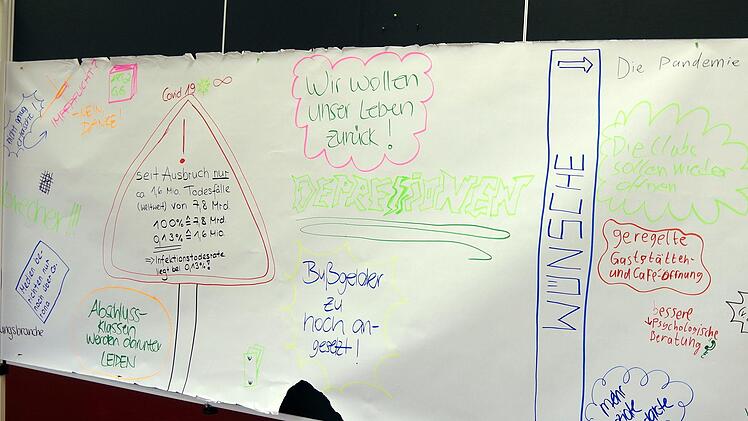 IMPFPFLICHT?
-NEIN,
DANKE!
brecher!!!
Medien be-
richten nur
noch über Co-
rona
ungsbranche
Covid 19 ∞
!
seit Ausbruch nur
ca. 1,6 Mio. Todesfälle
(weltweit) von 7,8 Mrd.
100% ≙ 7,8 Mrd.
0,13% ≙ 1,6 Mio.
⇒ Infektionstodesrate
liegt bei 0,13%!
Abschluss-
klassen
werden darunter
LEIDEN
Wir wollen
unser Leben
zurück!
DEPRESSIONEN
Bußgelder
zu
hoch an-
gesetzt!
WÜNSCHE
Die Pandemie
Die Clubs
sollen wieder
öffnen
geregelte
Gaststätten-
und Café-öffnung
bessere
psychologische
Beratung
mehr